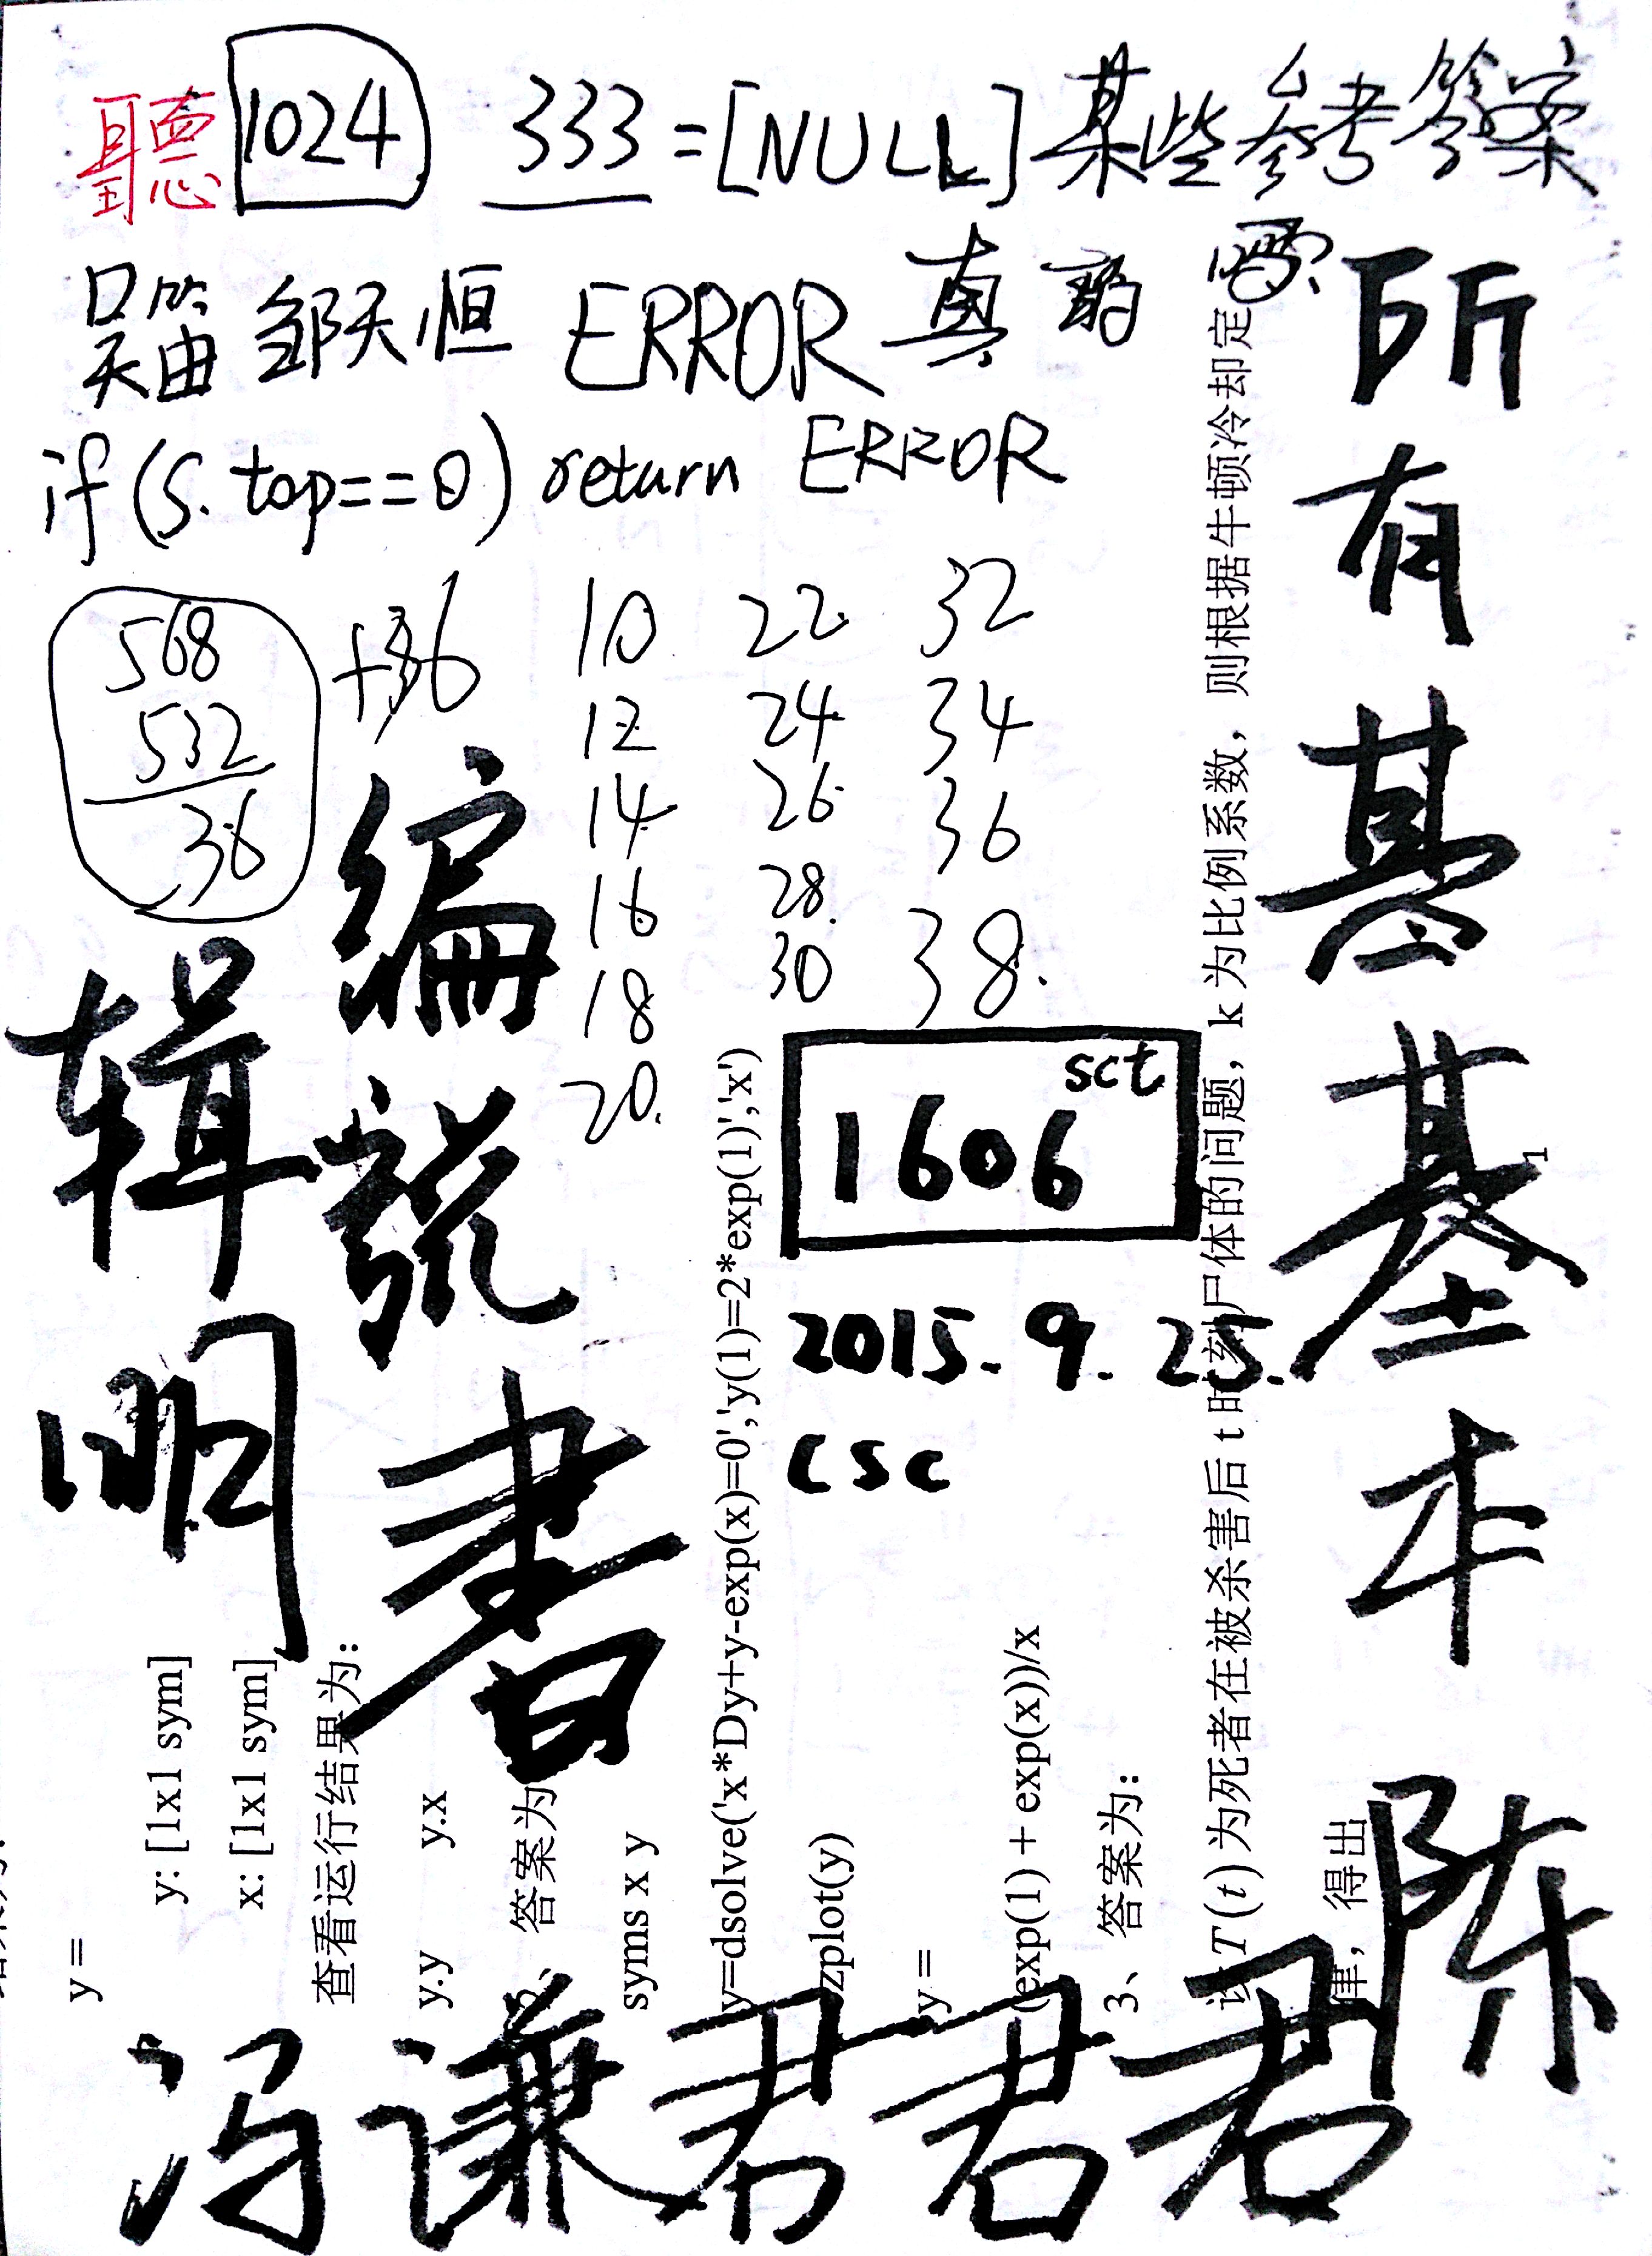 聽 1024 333=[NULL] 某些参考答案
吴笛 邹天恒 ERROR 真
if(S.top==0) return ERROR
568
532
36
+36
10 22 32
12 24 34
14 26 36
16 28. 38.
18 30
20.
编辑
說明
書
sct
1606
2015.9.25.
csc
所有基基本
陈
冯谦君君君
y =
y: [1x1 sym]
x: [1x1 sym]
查看运行结果为：
y.y y.x
答案为
syms x y
y=dsolve('x*Dy+y-exp(x)=0','y(1)=2*exp(1)','x')
zplot(y)
y =
(exp(1) + exp(x))/x
3、答案为：
设 T(t) 为死者在被杀害后 t 时刻尸体的问题，k 为比例系数，则根据牛顿冷却定
律，得出
1